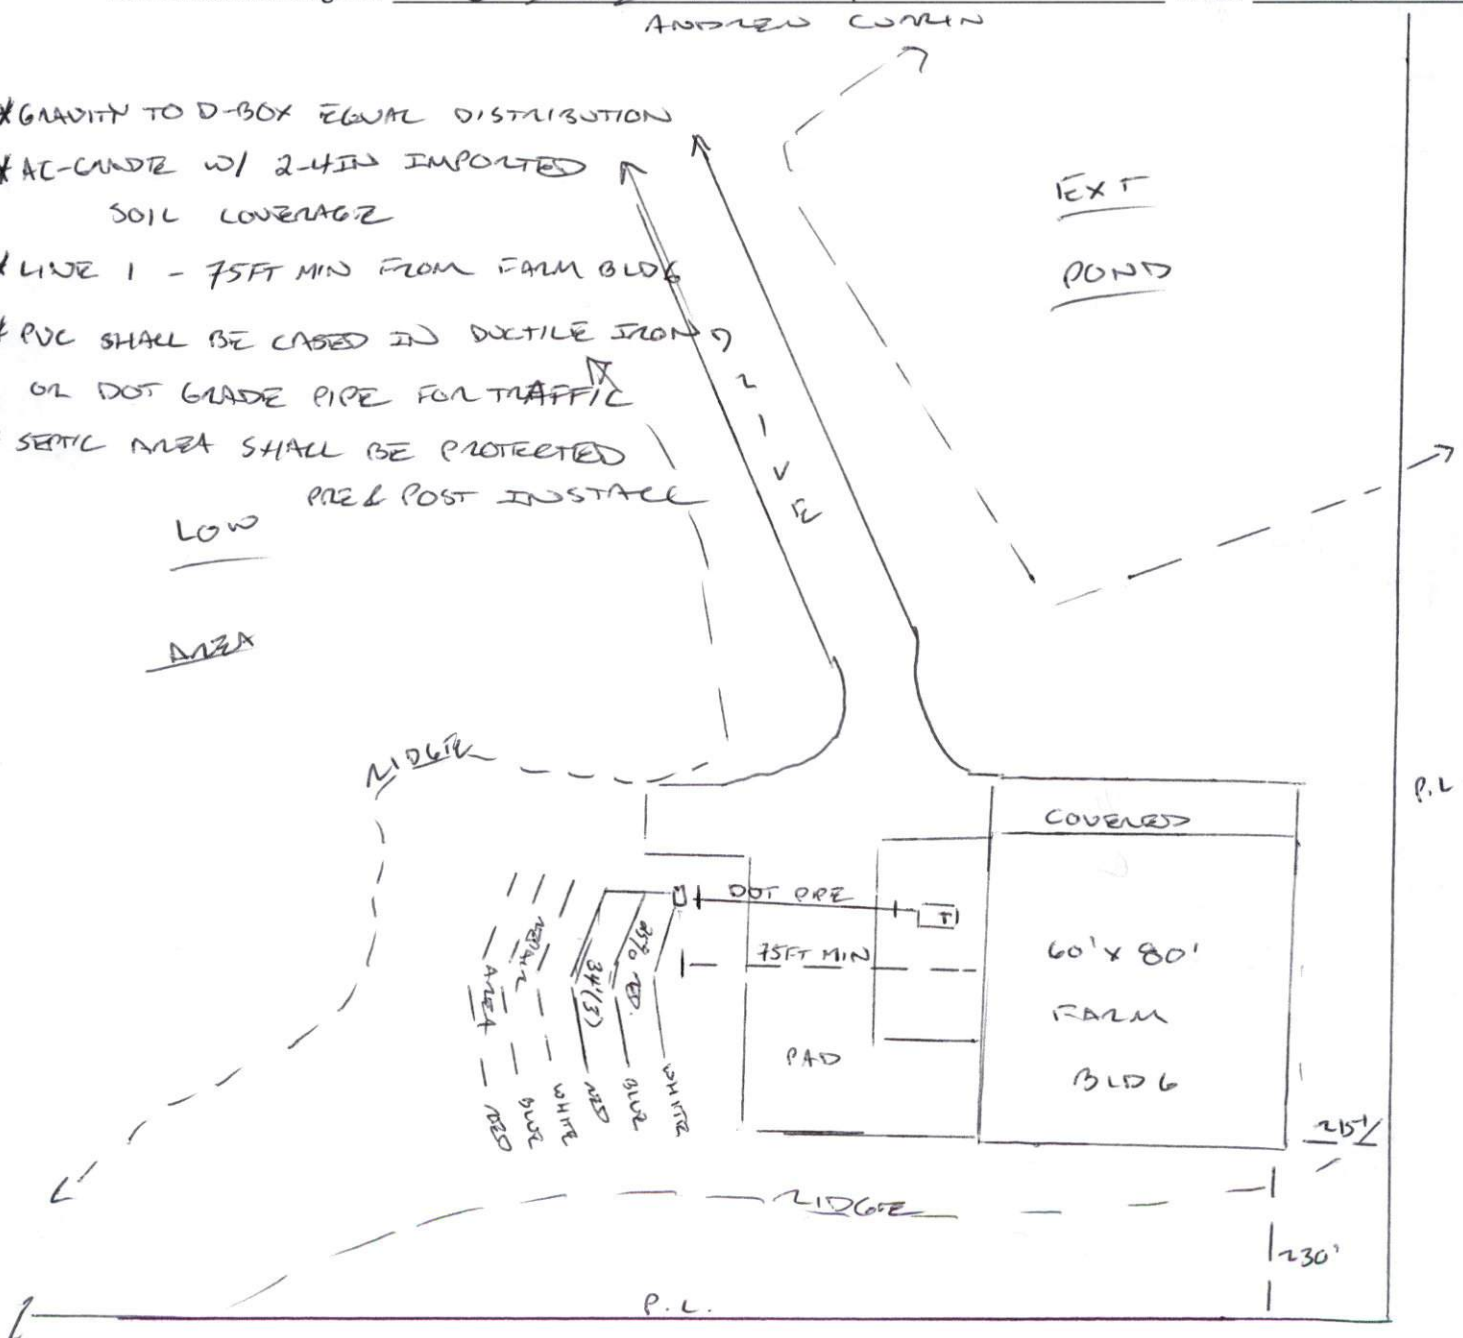 ANDREW CURRIN
*GRAVITY TO D-BOX EQUAL DISTRIBUTION
*AT-GRADE W/ 2-4IN IMPORTED
SOIL COVERAGE
*LINE 1 - 75FT MIN FROM FARM BLDG
*PVC SHALL BE CASED IN DUCTILE IRON
OR DOT GRADE PIPE FOR TRAFFIC
SEPTIC AREA SHALL BE PROTECTED
PRE & POST INSTALL
LOW
AREA
EXT
POND
DRIVE
RIDGE
P.L
COVERED
DOT PIPE
T
75FT MIN
60' X 80'
FARM
BLDG
PAD
REPAIR
AREA
34'(3)
25% RED.
RED
BLUE
WHITE
RED
BLUE
WHITE
RIDGE
~230'
P.L.